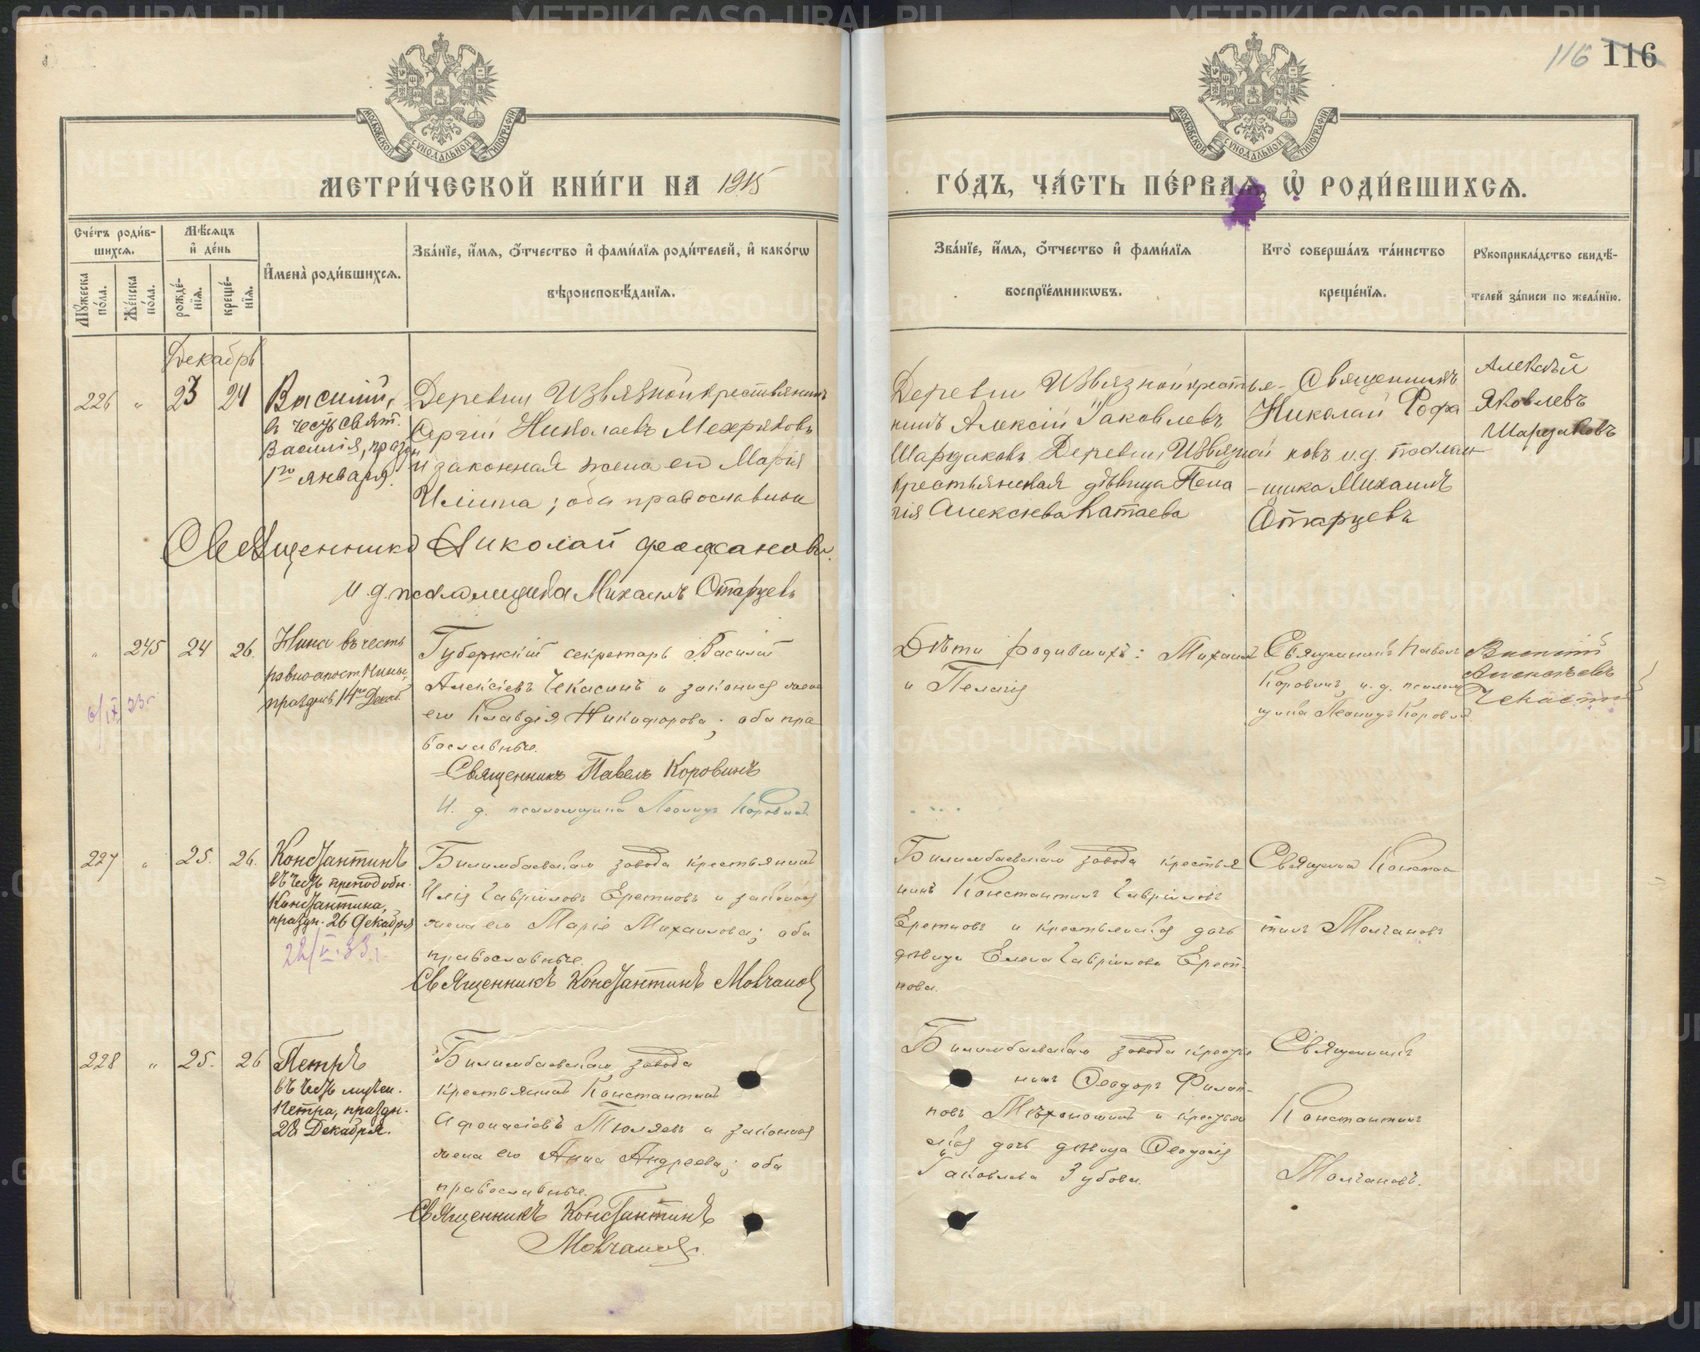 116 116
МЕТРИ́ЧЕСКОЙ КНИ́ГИ НА 1915
ГО́ДЪ, ЧА́СТЬ ПЕ́РВАѦ, Ѽ РОДИ́ВШИХСѦ.
Сче́тъ роди́в-
шихсѧ.
Мꙋ́жеска по́ла.
Же́нска по́ла.
Мѣ́сѧцъ и҆ де́нь
рожде́-
нїѧ.
креще́-
нїѧ.
И҆мена̀ роди́вшихсѧ.
Зва́нїе, и҆́мѧ, ѻ҆́тчество и҆ фами́лїѧ роди́телей, и҆ како́гѡ
вѣроисповѣ́данїѧ.
Зва́нїе, и҆́мѧ, ѻ҆́тчество и҆ фами́лїѧ
воспрїе́мникѡвъ.
Кто̀ соверша́лъ та́инство
креще́нїѧ.
Рꙋкоприкла́дство свидѣ́-
телей за́писи по жела́нїю.
Декабрь
226 " 23 24
Василій,
въ честь свят.
Василія, праздн
1го января.
Деревни Извязной крестьянинъ
Сергій Николаевъ Мехряковъ
и законная жена его Марія
Ильина; оба православные
Деревни Извязной крестья-
нинъ Алексій Іаковлевъ
Шардаковъ Деревни Извязной
крестьянская дѣвица Пела
гія Алексѣева Катаева
Священникъ
Николай Фофа
новъ и.д. псалом-
щика Михаилъ
Старцевъ
Алексѣй
Яковлевъ
Шардаковъ
Священникъ Николай Фофановъ
И.д. псаломщика Михаилъ Старцевъ
" 245 24 26.
Нина въ честь
равноапост Нины,
праздн 14го Января
Губернскій секретарь Василій
Алексіевъ Чекасинъ и законная жена
его Клавдія Никифорова; оба пра
вославные.
Священникъ Павелъ Коровинъ
И. д. псаломщика Леонидъ Коровинъ
Дѣти родившихъ: Михаилъ
и Пелагія
Священникъ Павелъ
Коровинъ, и. д. псалом
щика Леонидъ Коровинъ
Василій
Алексѣевъ
Чекасинъ
227 " 25. 26.
Константинъ
въ честь преподобн.
Константина,
праздн. 26 Декабря
Билимбаевскаго завода крестьянинъ
Илія Гавріиловъ Еретновъ и законная
жена его Марія Михаилова; оба
православные.
Священникъ Константинъ Молчановъ
Билимбаевскаго завода крестья
нинъ Константинъ Гавріиловъ
Еретновъ и крестьянская дочь
дѣвица Елена Гавріилова Ерет-
нова.
Священникъ Констан
тинъ Молчановъ
228 " 25. 26
Петръ
въ честь мучен.
Петра, праздн.
28 Декабря.
Билимбаевскаго завода
крестьянинъ Константинъ
Афонасіевъ Тюляевъ и законная
жена его Анна Андреева; оба
православные.
Священникъ Константинъ
Молчановъ.
Билимбаевскаго завода крестья
нинъ Ѳеодоръ Филип-
повъ Мѣхоношинъ и крестьян
ская дочь дѣвица Ѳеодосія
Іаковлева Зубова.
Священникъ
Константинъ
Молчановъ.